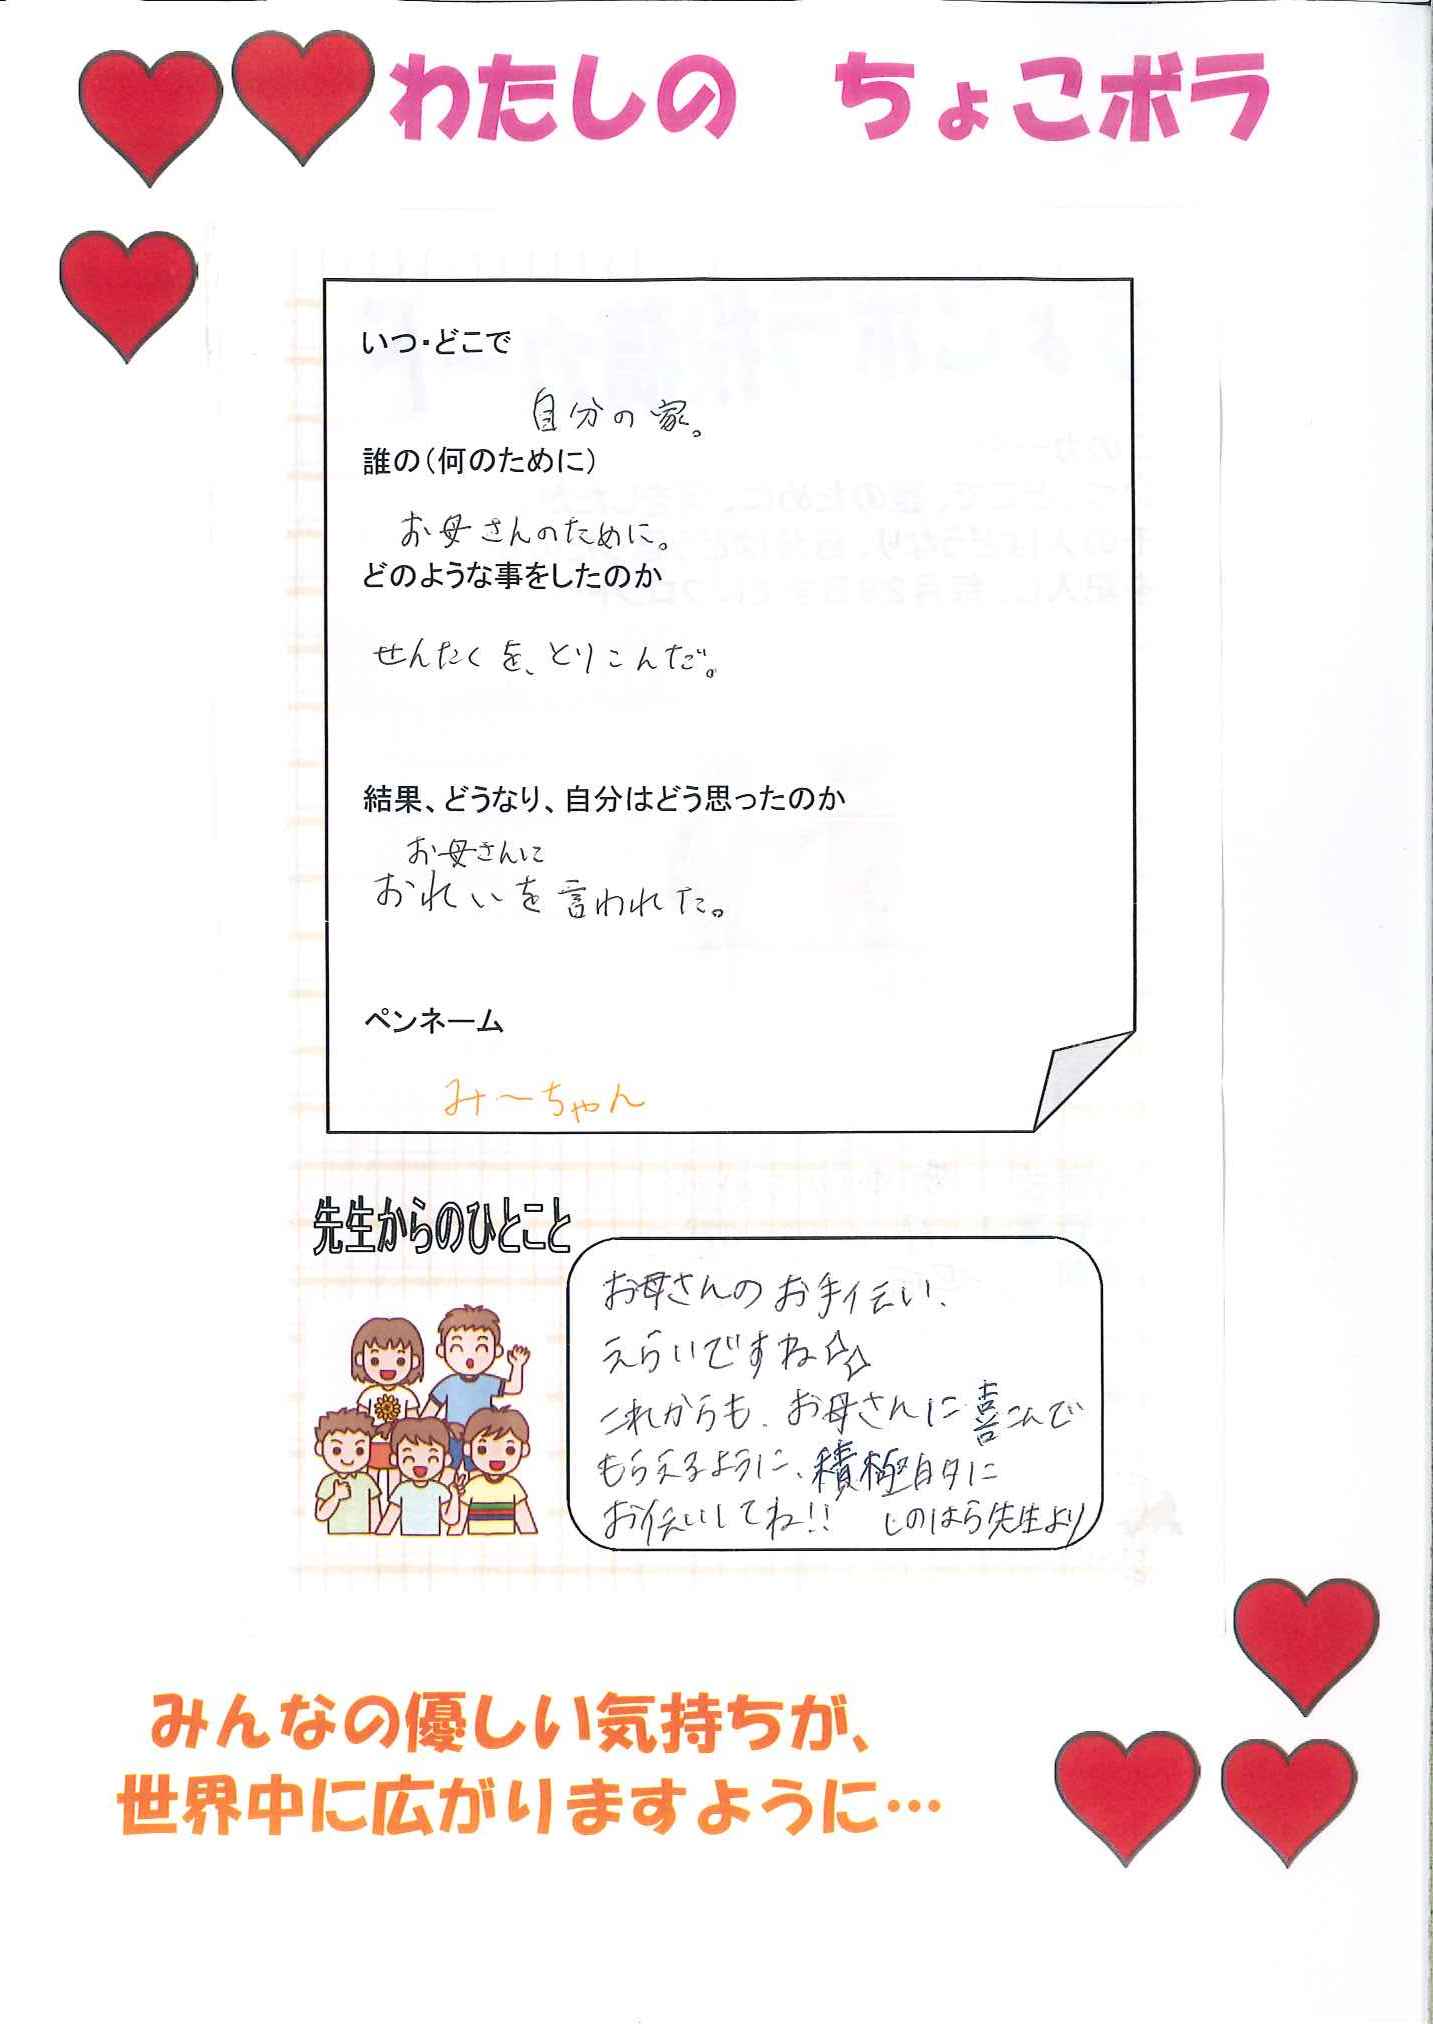 わたしの　ちょこボラ
いつ・どこで
自分の家。
誰の（何のために）
お母さんのために。
どのような事をしたのか
せんたくを、とりこんだ。
結果、どうなり、自分はどう思ったのか
お母さんに
おれいを言われた。
ペンネーム
み～ちゃん
先生からのひとこと
お母さんのお手伝い、
えらいですね☆☆
これからも、お母さんに喜こんで
もらえるように、積極的に
お伝いしてね!!　しのはら先生より
みんなの優しい気持ちが、
世界中に広がりますように…